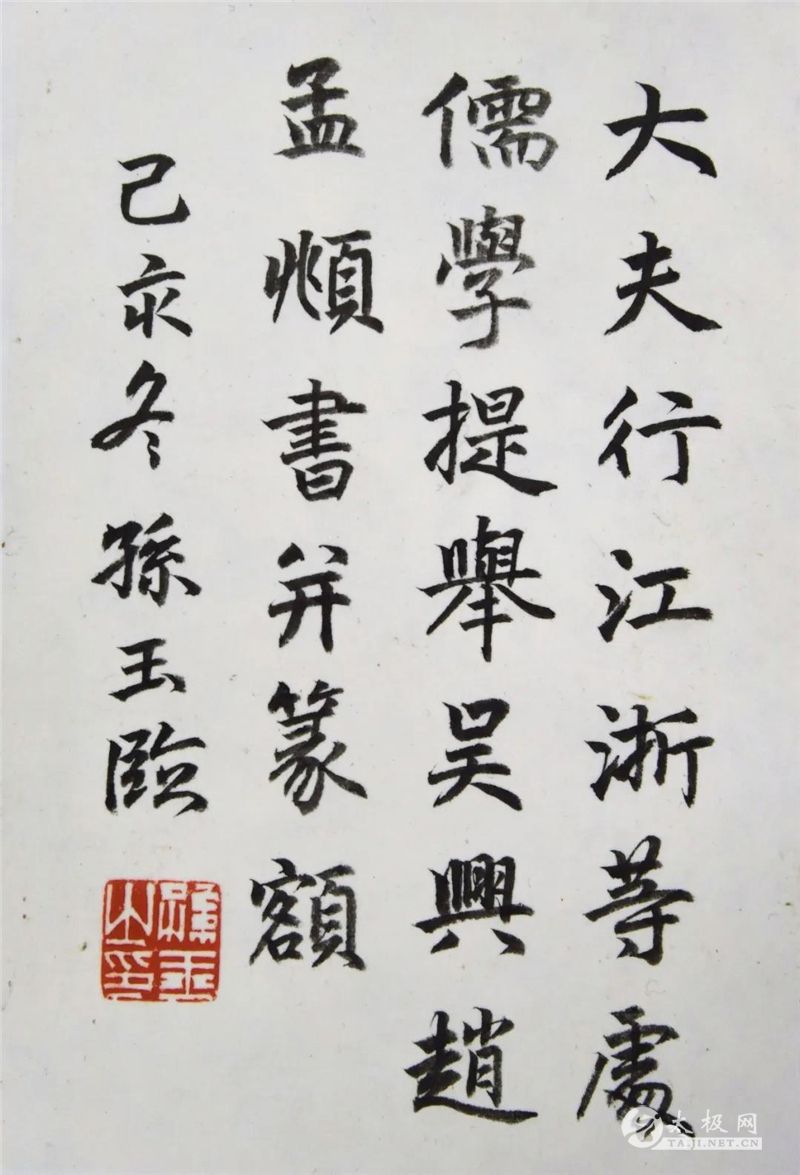 大夫行江浙等處
儒學提舉吴興趙
孟頫書并篆額
己亥冬孫玉臨
孫玉之印
太极网
TAIJI.NET.CN